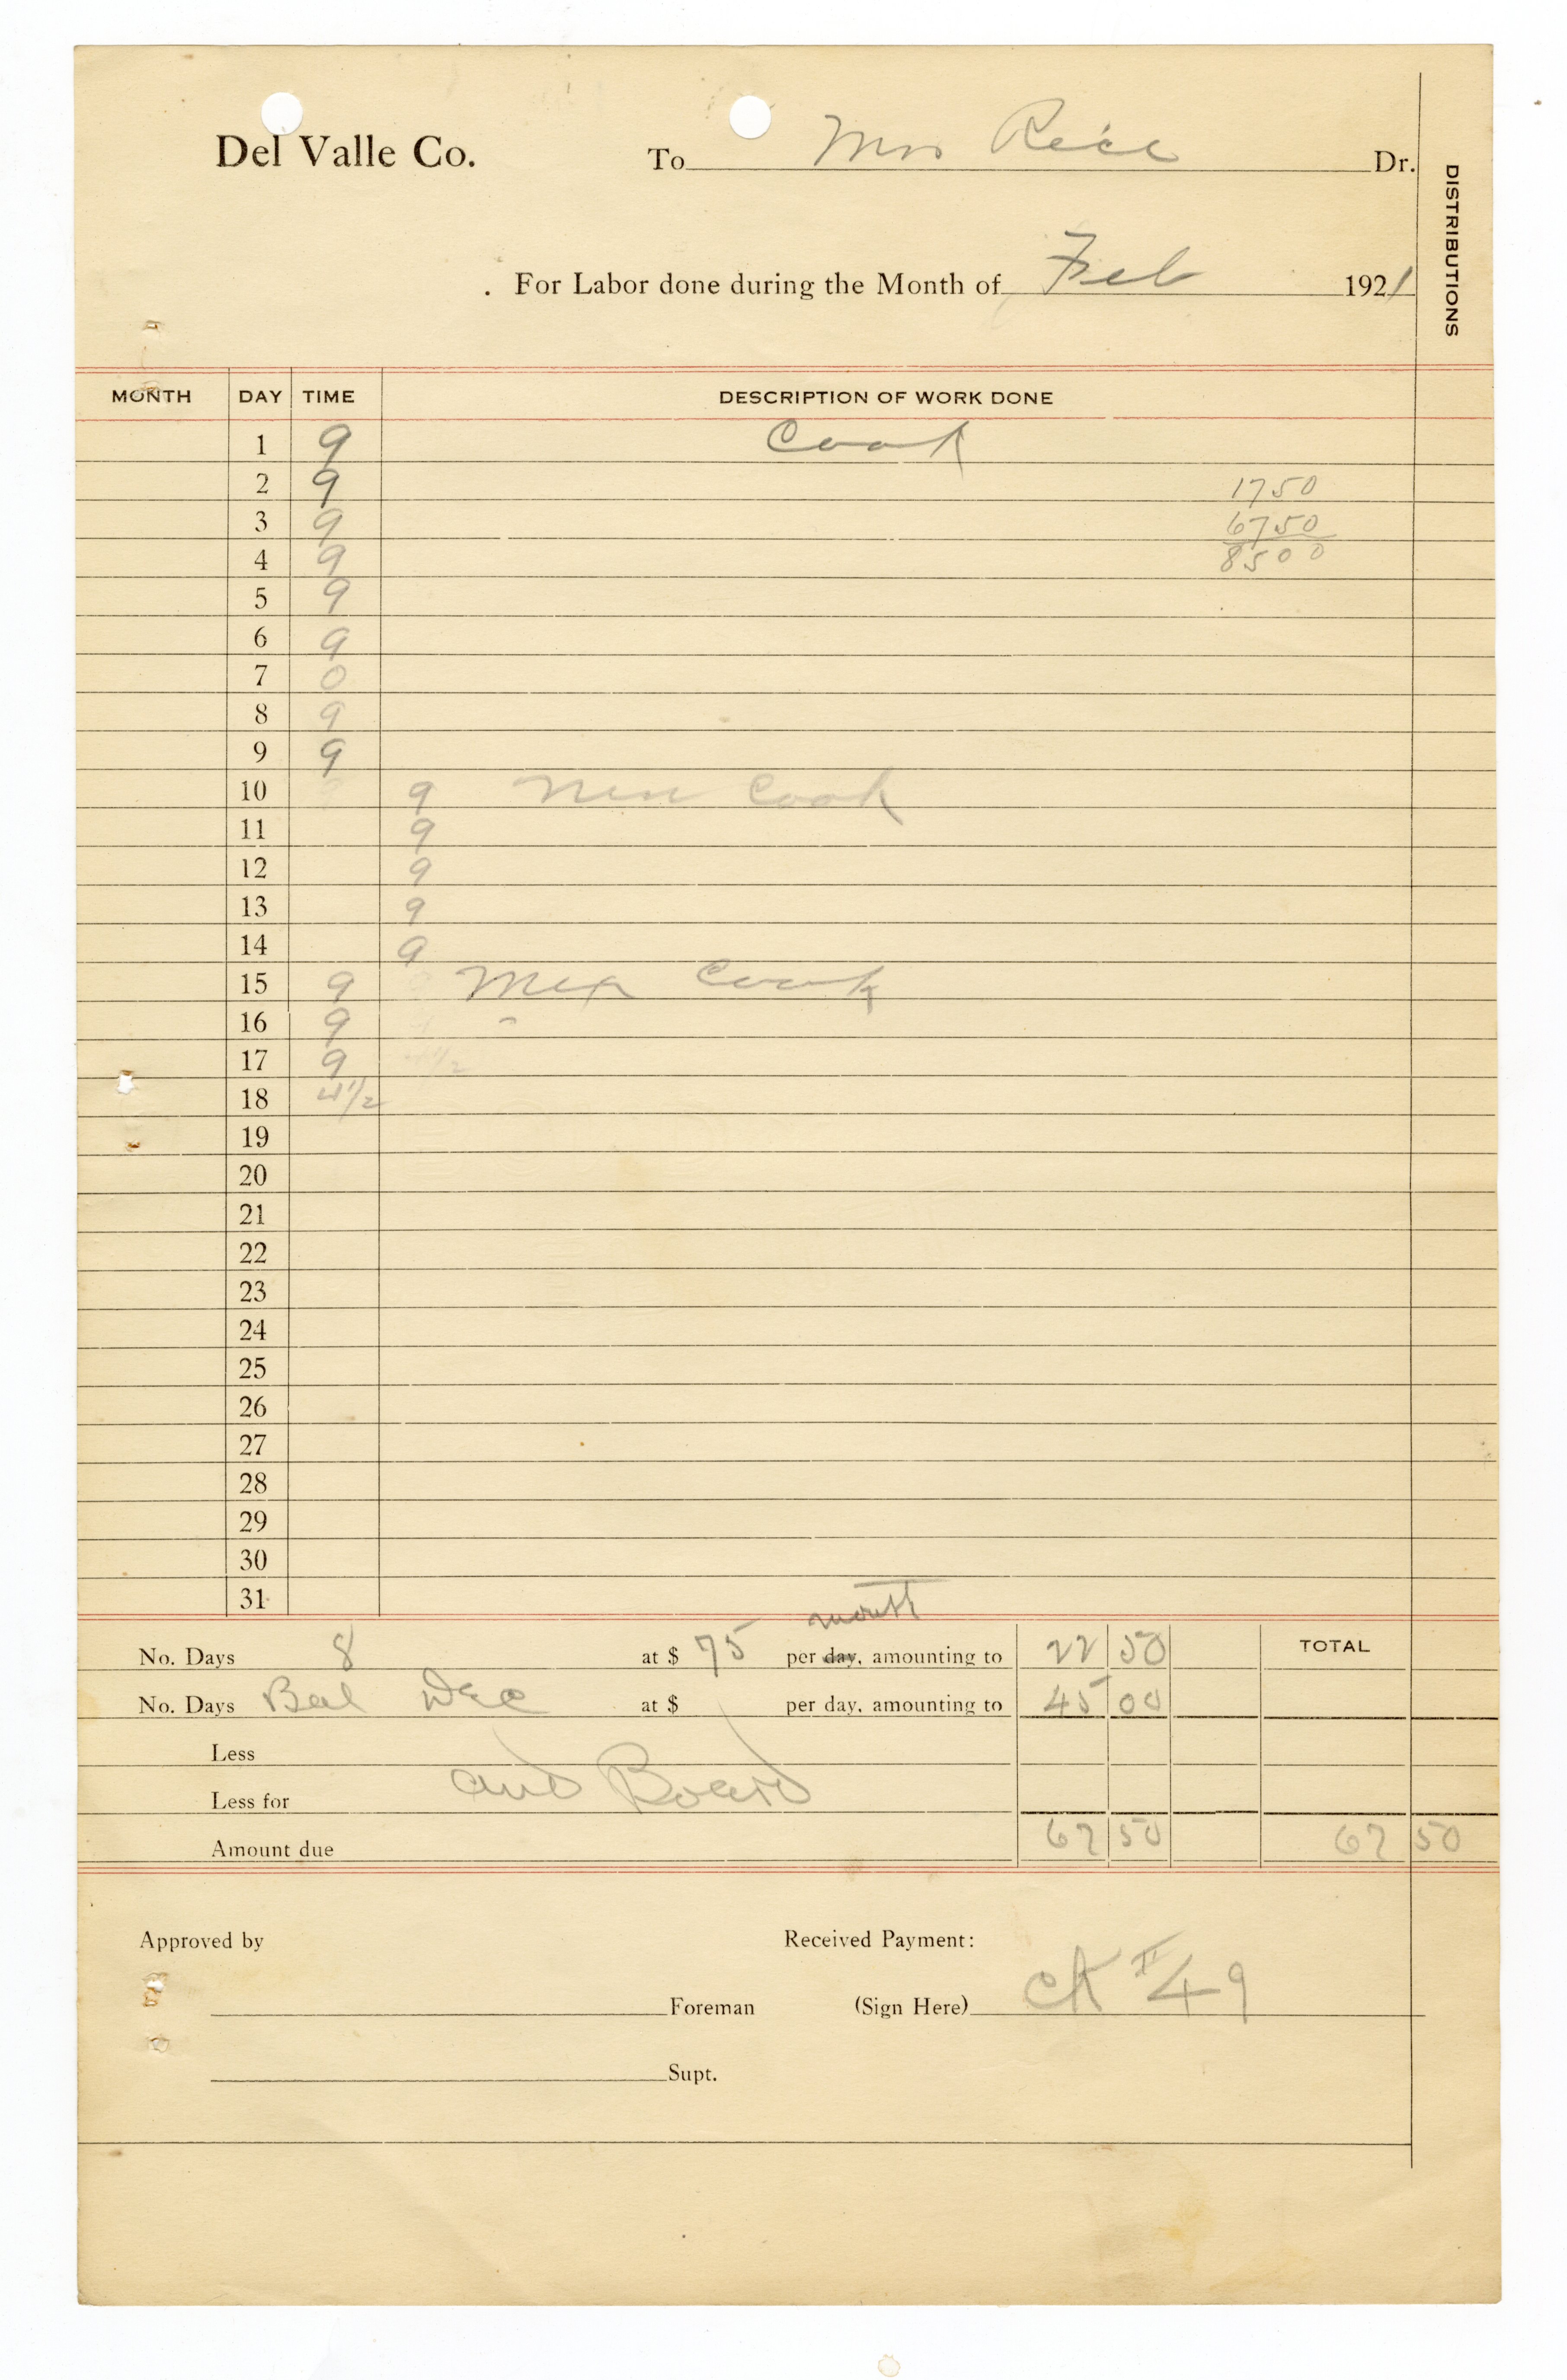 Del Valle Co. To Mrs Rice Dr.
DISTRIBUTIONS
For Labor done during the Month of Feb 1921
MONTH DAY TIME DESCRIPTION OF WORK DONE
1 9 Cook
2 9 1750
3 9 6750
4 9 8500
5 9
6 9
7 0
8 9
9 9
10 9 Cook
11 9
12 9
13 9
14 9
15 9 Mex Cook
16 9
17 9
18 4 1/2
19
20
21
22
23
24
25
26
27
28
29
30
31
month
No. Days 8 at $ 75 per day, amounting to 22 50 TOTAL
No. Days Bal Dec at $ per day, amounting to 45 00
Less
and Board
Less for
Amount due 67 50 67 50
Approved by Received Payment:
Foreman (Sign Here) CK # 49
Supt.